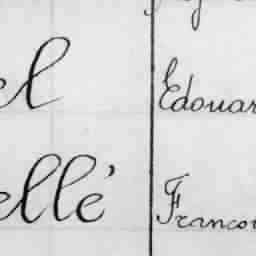 el Edouar
ellé Francoi